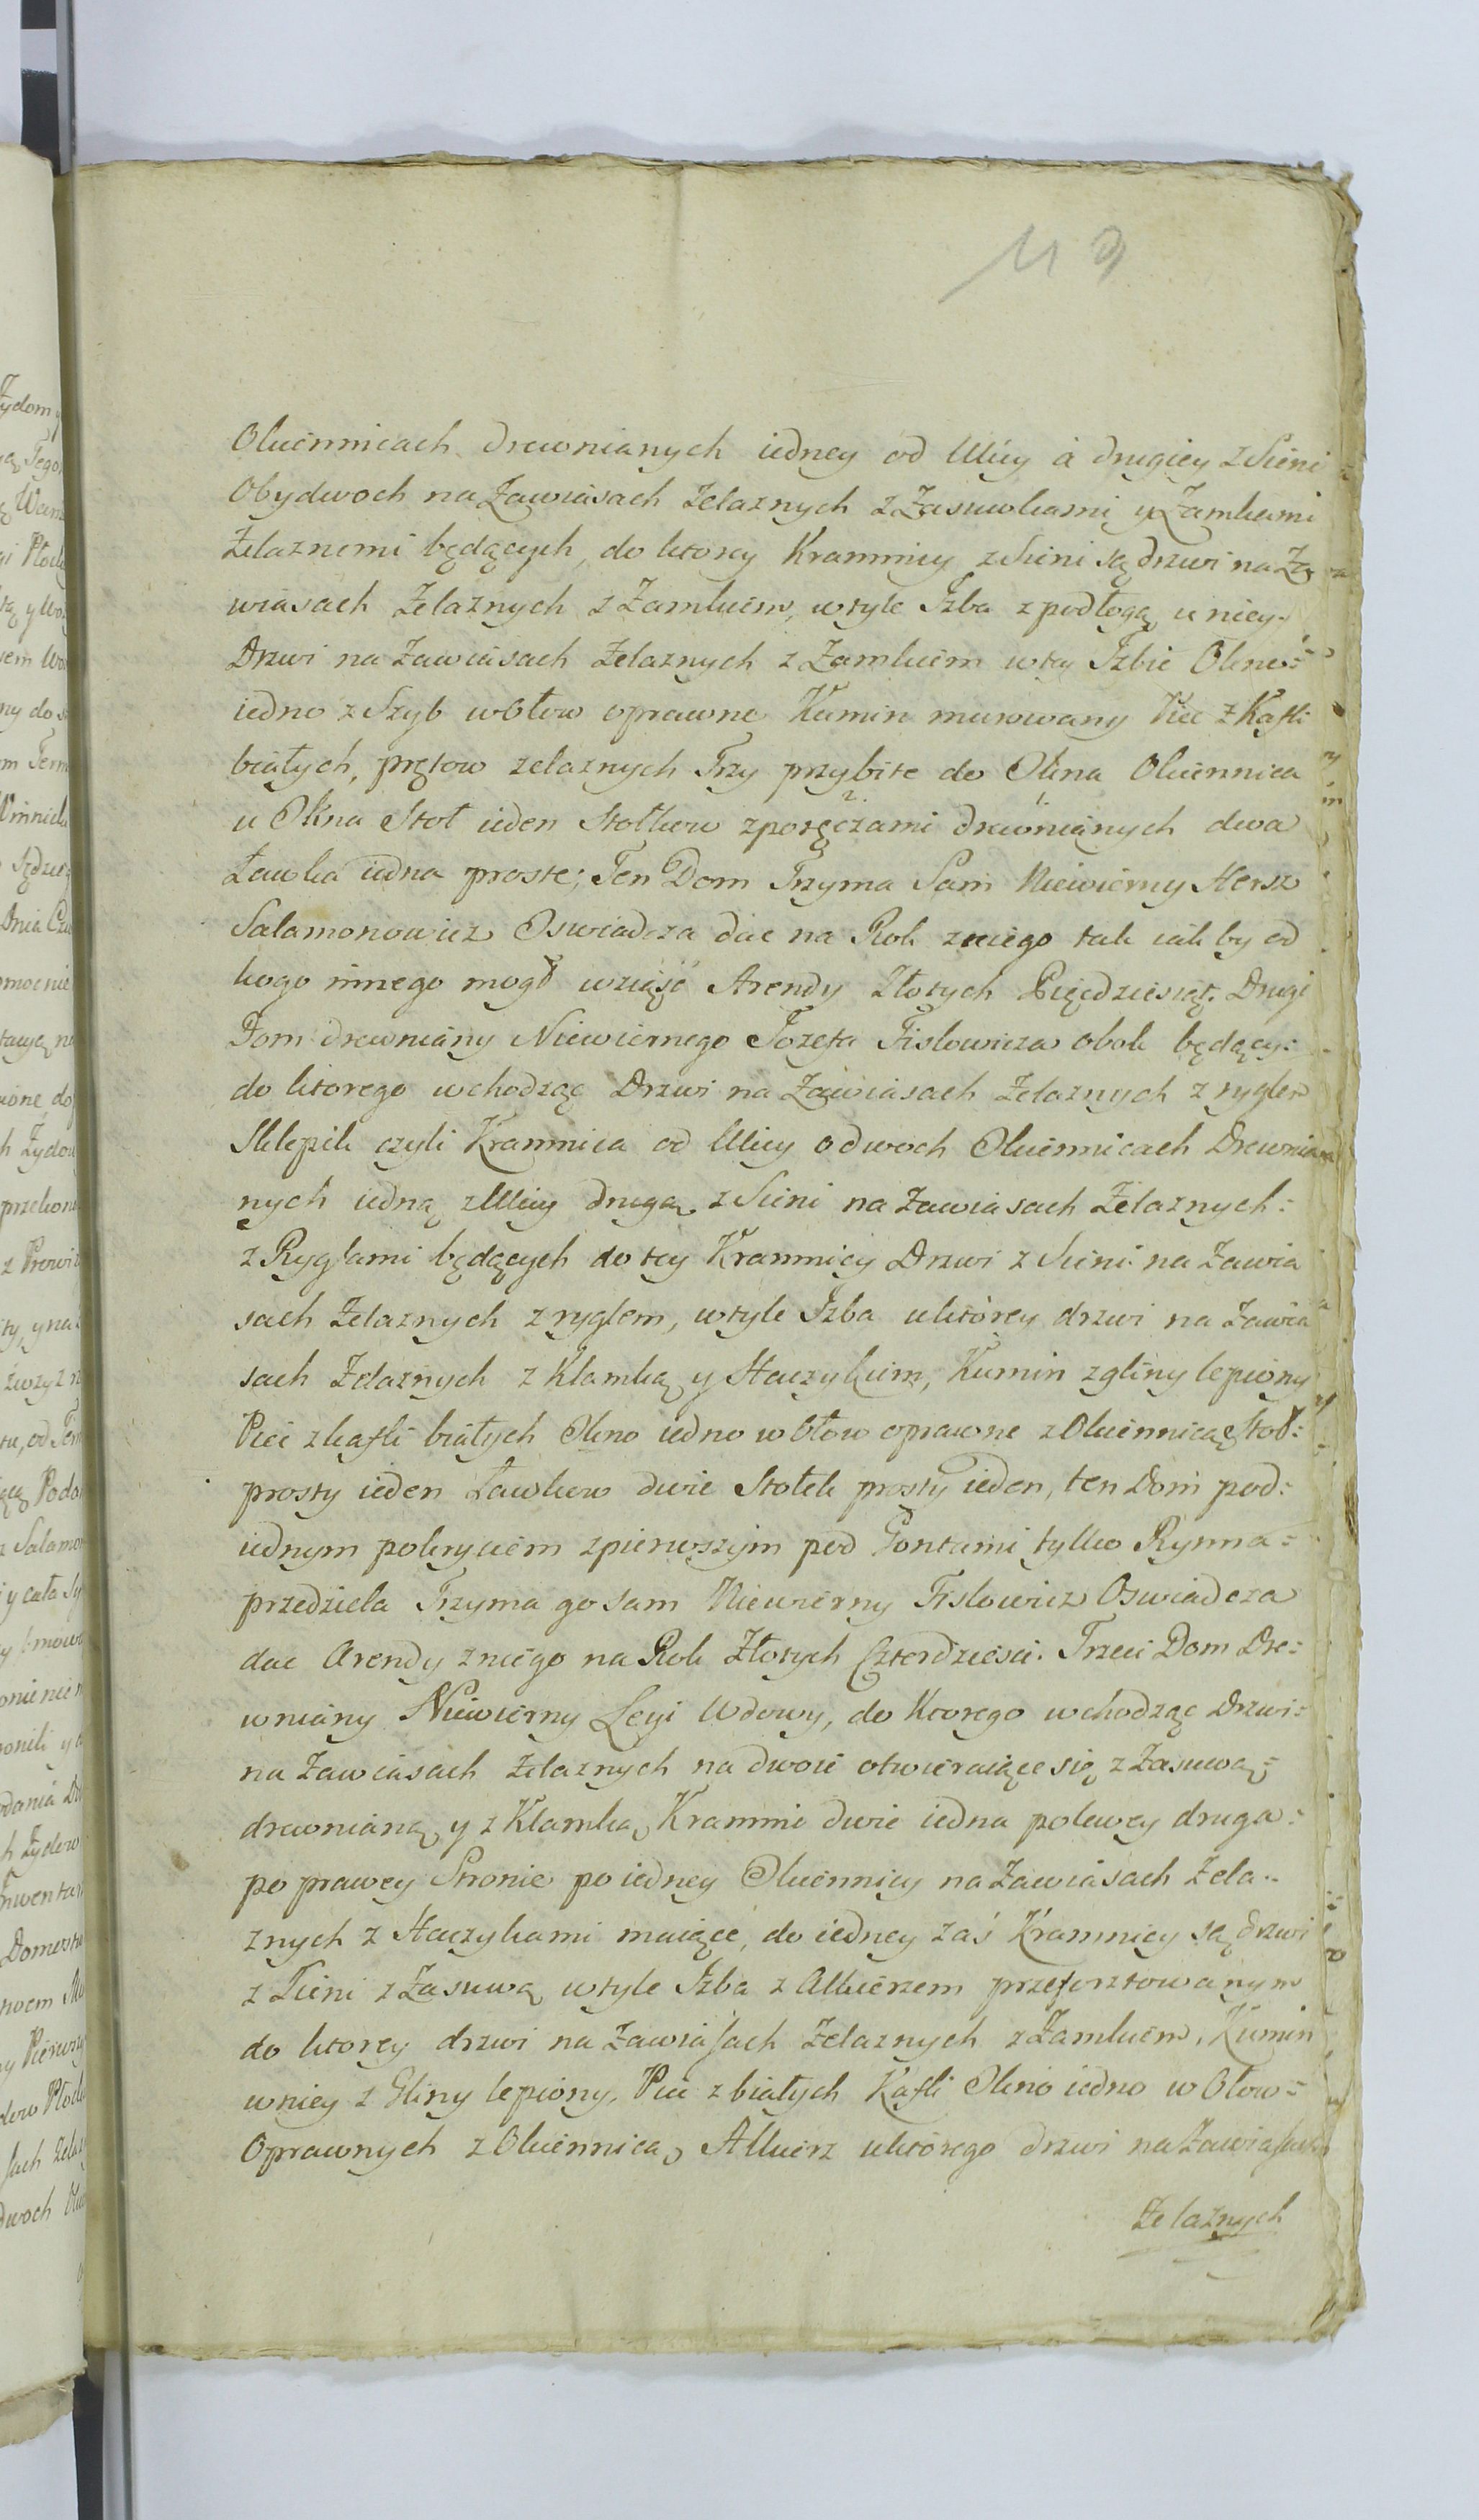 119
Okiennicach drewnianych iedney od Ulicy á drugiey z Sieni
Obydwoch na Zawiasach żelaznych z Zasuwkami y Zamkami
Żelaznemi będących, do ktorey Kramnicy z Sieni są drzwi na Za
wiasach Żelaznych z Zamkiem, w tyle Izba z podłogą u niey
Drzwi na Zawiasach żelaznych z Zamkiem w tey Izbie Okno=
iedno z Szyb w Ołow oprawne Kamin murowany Piec z Kafli
białych, prętow zelaznych Trzy przybite do Okna Okiennica
u Okna Stoł ieden Stołkow z poręczami drewnianych dwa
Ławka iedna proste; Ten Dom Trzyma Sam Niewierny Hersz
Salamonowicz Oswiadcza dac na Rok z niego tak iak by od
kogo innego mogł wziąść Arendy Złotych Pięćdziesiąt. Drugi
Dom drewniany Niewiernego Jozefa Fislowicza obok będący:
do ktorego wchodząc Drzwi na Zawiasach Żelaznych z ryglem
Sklepik czyli Kramnica od Ulicy o dwoch Okiennicach Drewnia
nych iedną z Ulicy drugą z Sieni na Zawiasach Żelaznych:
z Ryglami będących do tey Kramnicy Drzwi z Sieni na Zawia
sach Żelaznych z ryglem, w tyle Izba u ktorey drzwi na Zawia
sach Żelaznych z Klamką y Haczykiem, Kumin z gliny lepiony
Piec z kafli białych Okno iedno w Ołow oprawne z Okiennicą Stoł:
prosty ieden Ławkow dwie Stołek prosty ieden, ten Dom pod:
iednym pokryciem z pierwszym pod Gontami tylko Rynna=
przedziela Trzyma go sam Niewierny Fislowicz Oswiadcza
dac Arendy z niego na Rok Złotych Czterdziesci. Trzeci Dom Dre=
wniany Niewierny Leyi Wdowy, do Ktorego wchodząc Drzwi=
na Zawiasach żelaznych na dwoie otwieraiące się z Zasuwą=
drewnianą y z Klamką, Kramnic dwie iedna po lewey druga:
po prawey Stronie po iedney Okiennicy na Zawiasach Zela..
znych z Haczykami maiące, do iedney zaś Kramnicy są drzwi
z Sieni z Zasuwą w tyle Izba z Alkierzem przeforsztowanym
do ktorey drzwi na Zawiasach Żelaznych z Zamkiem, Kumin
w niey z Gliny lepiony, Piec z białych Kafli Okno iedno w Ołow=
Oprawnych z Okiennicą, Alkierz u ktorego drzwi na Zawiasach
Żelaznych